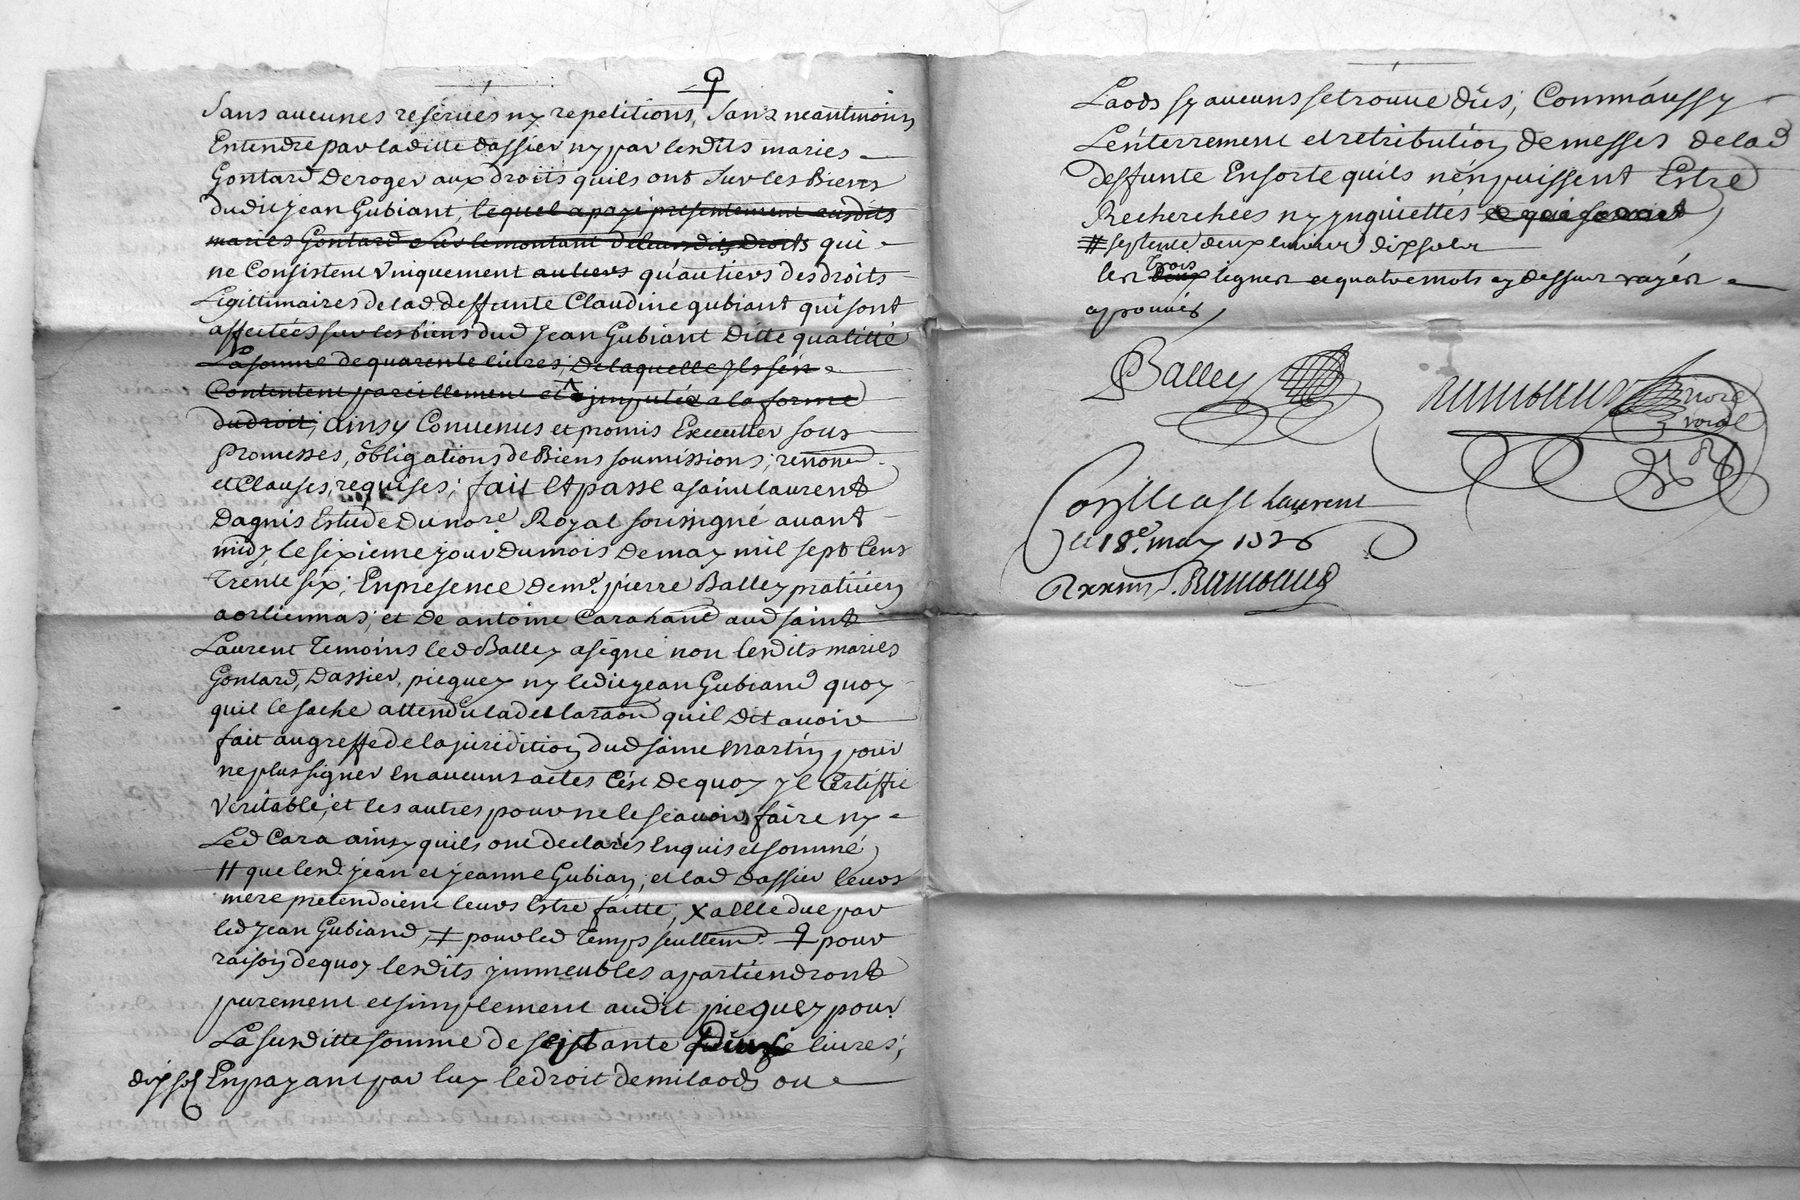 Sans aucunes reserves ny repetitions, sans neantmoins
Entendre par laditte Dassier ny par lesdits maries
Gontard Deroger aux droits quils ont sur les Biens
dudit Jean Gubiant, lequel a payé presentement ausdits
maries Gontard le montant de leursdits droits qui
ne Consistent Uniquement au tiers qu'au tiers des droits
Legittimaires de lad deffunte Claudine gubiant qui sont
affectées sur les biens dud Jean Gubiant Ditte qualitté
La somme de quarente livres, De laquelle ils s'en
Contentent pareillement et jmputée a la forme
du droit, ainsy Convenus et promis Executter sous
Promesses, obligations de Biens soumissions, renonõn
et Clauses requises; fait et passé a saint laurent
Dagnis Estude Du nore. Royal sousigné avant
midy le sixieme jour du mois De may mil sept Cens
Trente six; En presence De me. pierre Balley pratticien
a orliennas; et De antoine Cara aud saint
Laurent Temoins led Balley a signé non lesdits maries
Gontard, Dassier, pieguey ny ledit jean Gubiand quoy
quil le sache attendu la declaraõn quil Dit avoir
fait au greffe de la juridition dud saint Martin pour
ne plus signer en aucuns actes C'est De quoy yl Certiffie
veritable, et les autres pour ne le scavoir faire ny
Led Cara ainsy quils ont declarés Enquis et sommé
# que lesd. jean et jeanne Gubian, et lad Dassier leurs
mere pretendoient leurs Estre faitte, x a elle due par
led Jean Gubiand, + pour led Temps seullemt. ♀ pour
raison de quoy lesdits jmmeubles apartiendront
purement et simplement audit pieguey pour
La susditte somme de septante Deux livres,
dix sols En payant par luy le droit de milaods ou
Laods sy aucuns se trouve dûs, Comm'aussy
L'enterrement et retribution de messes de lad
deffunte En sorte quils n'en puissent Estre
Recherchées ny jnquiettés
# septente deux livres dix sols
les deux Trois lignes et quatre mots cy dessus rayés
aprouvés
Balley
nore
roial
Conllé a St laurent
le 18e. may 1736